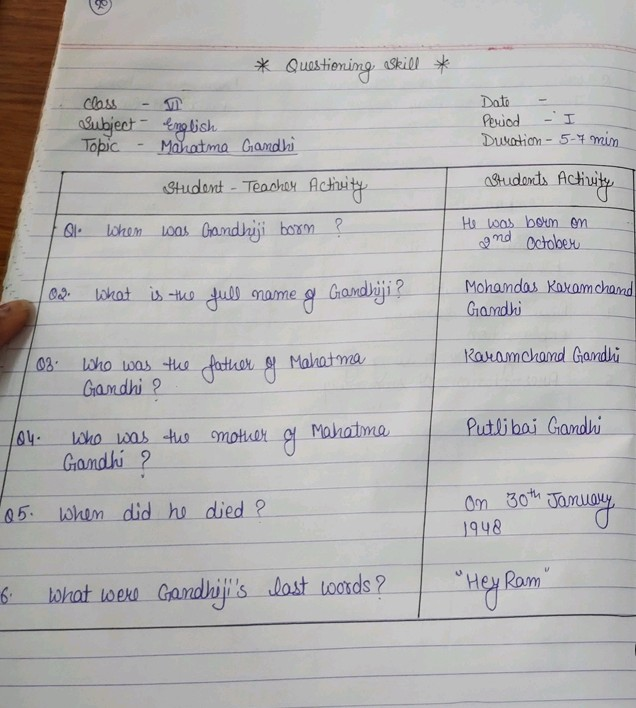 * Questioning Skill *
Class - VI
Subject - English
Topic - Mahatma Gandhi
Date -
Period - I
Duration - 5-7 min
Student - Teacher Activity
Students Activity
Q1. When was Gandhiji born ?
He was born on
2nd October
Q2. What is the full name of Gandhiji?
Mohandas Karamchand
Gandhi
Q3. Who was the father of Mahatma
Gandhi ?
Karamchand Gandhi
Q4. Who was the mother of Mahatma
Gandhi ?
Putlibai Gandhi
Q5. When did he died ?
On 30th January
1948
6. What were Gandhiji's last words?
"Hey Ram"